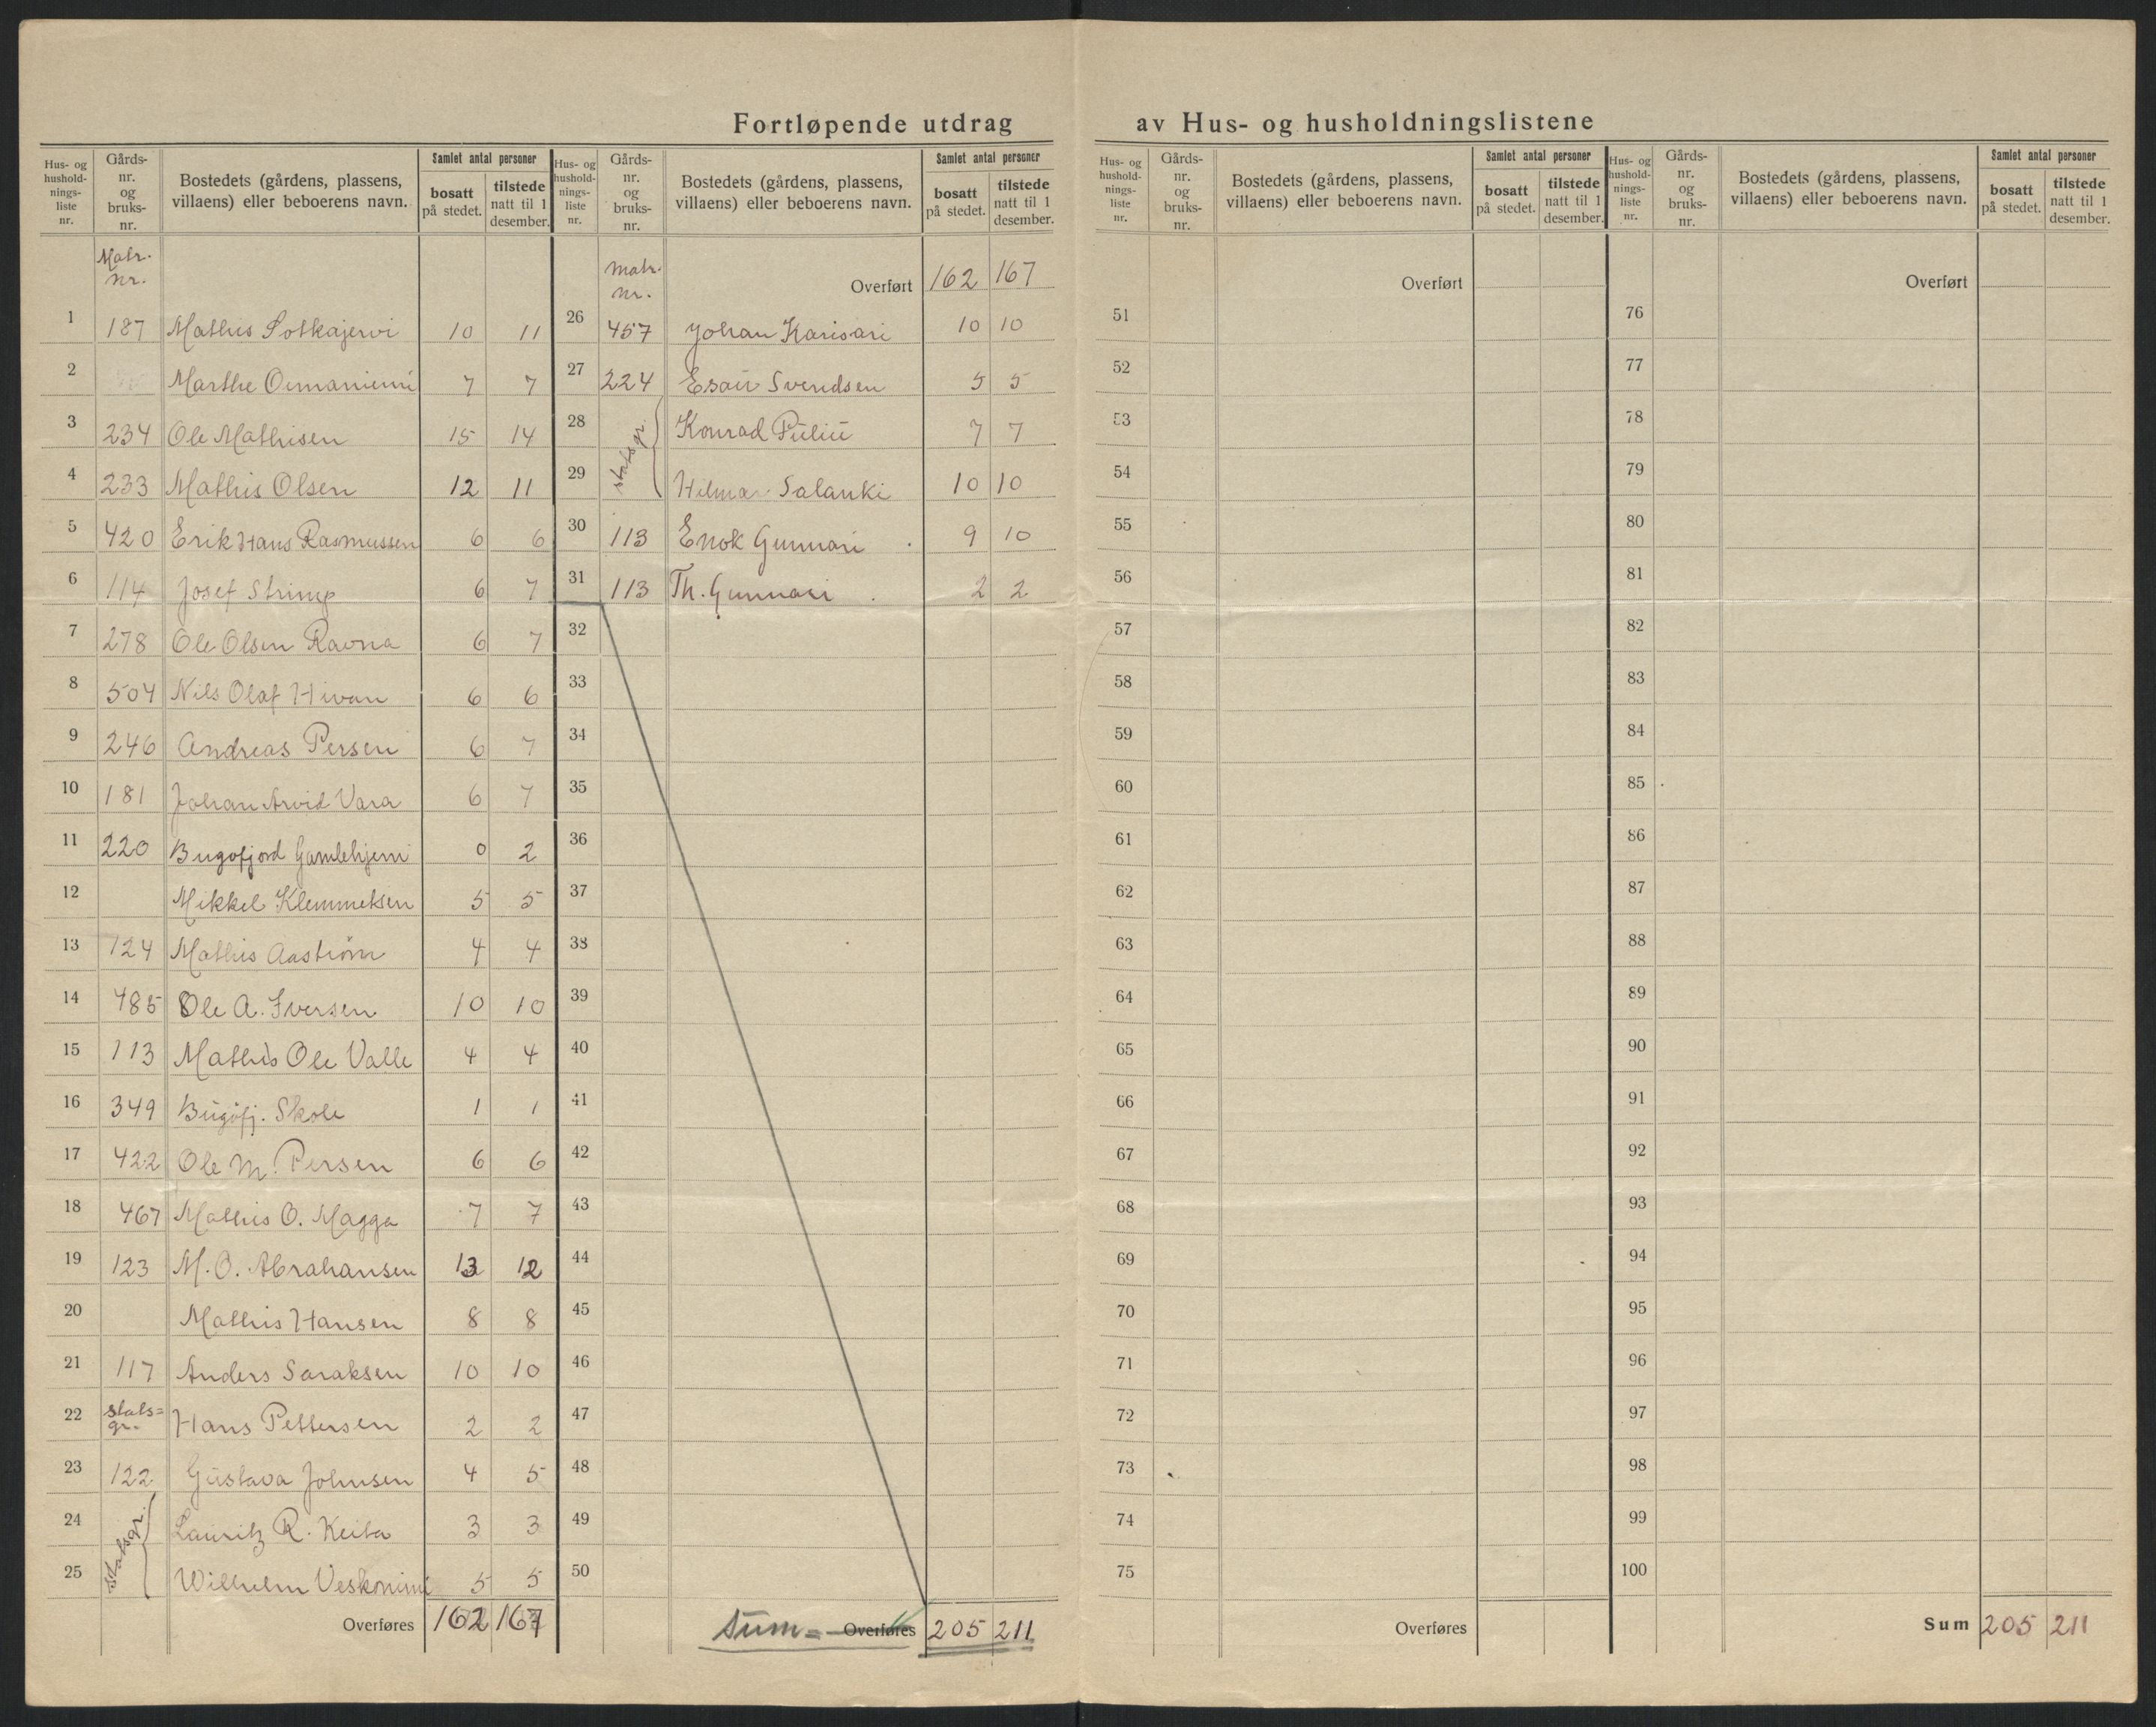 Fortløpende utdrag av Hus- og husholdningslistene
Hus- og hushold- nings- liste nr. Gårds- nr. og bruks- nr. Bostedets (gårdens, plassens, villaens) eller beboerens navn. Samlet antal personer bosatt på stedet. tilstede natt til 1 desember.
Matr. nr.
1 187 Mathis Sotkajervi 10 11
2 Marthe 7 7
3 234 Ole Mathisen 15 14
4 233 Mathis Olsen 12 11
5 420 Erik Hans Rasmussen 6 6
6 114 Josef Strimp 6 7
7 278 Ole Olsen Ravna 6 7
8 504 Nils Olaf Hivan 6 6
9 246 Andreas Persen 6 7
10 181 Johan Arvid Vara 6 7
11 220 Bugøfjord Gamlehjem 0 2
12 Mikkel Klemmetsen 5 5
13 124 Mathis Aaström 4 4
14 485 Ole A. Iversen 10 10
15 113 Mathis Ole Valle 4 4
16 349 Bugøfj. Skole 1 1
17 422 Ole M. Persen 6 6
18 467 Mathis O. Magga 7 7
19 123 M. O. Abrahansen 13 12
20 Mathis Hansen 8 8
21 117 Anders Saraksen 10 10
22 stats= gr. Hans Pettersen 2 2
23 122 Gustava Johnsen 4 5
24 statsgr. Lauritz R. Keita 3 3
25 Wilhelm Veskonimi 5 5
Overføres 162 167
Hus- og hushold- nings- liste nr. Gårds- nr. og bruks- nr. Bostedets (gårdens, plassens, villaens) eller beboerens navn. Samlet antal personer bosatt på stedet. tilstede natt til 1 desember.
matr. nr. Overført 162 167
26 457 Johan Karisari 10 10
27 224 Esair Svendsen 5 5
28 statsgr. Konrad Puliü 7 7
29 Hilmar Salanki 10 10
30 113 Enok Gunnari 9 10
31 113 Th. Gunnari 2 2
32
33
34
35
36
37
38
39
40
41
42
43
44
45
46
47
48
49
50
Sum = Overføres 205 211
Hus- og hushold- nings- liste nr. Gårds- nr. og bruks- nr. Bostedets (gårdens, plassens, villaens) eller beboerens navn. Samlet antal personer bosatt på stedet. tilstede natt til 1 desember.
Overført
51
52
53
54
55
56
57
58
59
60
61
62
63
64
65
66
67
68
69
70
71
72
73
74
75
Overføres
Hus- og hushold- nings- liste nr. Gårds- nr. og bruks- nr. Bostedets (gårdens, plassens, villaens) eller beboerens navn. Samlet antal personer bosatt på stedet. tilstede natt til 1 desember.
Overført
76
77
78
79
80
81
82
83
84
85
86
87
88
89
90
91
92
93
94
95
96
97
98
99
100
Sum 205 211